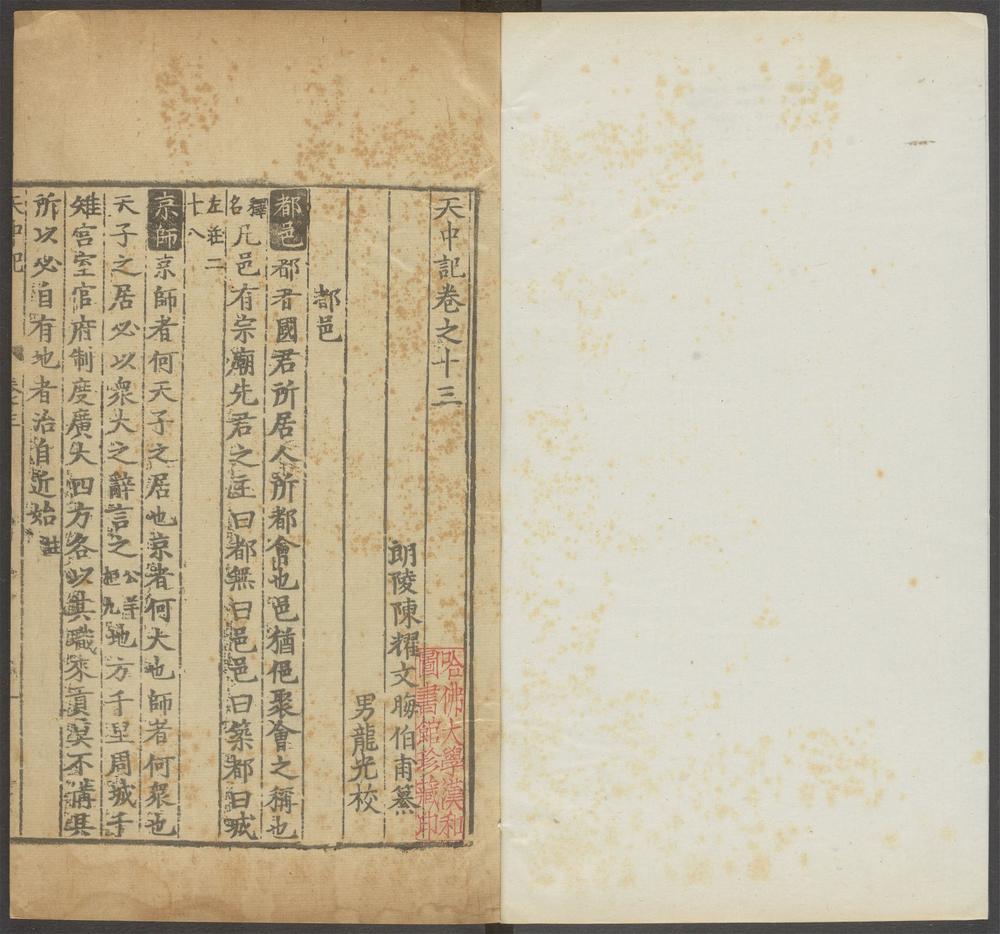 天中記卷之十三
朗陵陳耀文晦伯甫纂
男龍光校
都邑
都邑都者國君所居人所都會也邑猶俋聚會之稱也
釋名凡邑有宗廟先君之主曰都無曰邑邑曰築都曰城
左莊二十八
京師京師者何天子之居也京者何大也師者何衆也
天子之居必以衆大之辭言之公羊桓九地方千里周城千
雉宮室官府制度廣大四方各以其職來貢莫不備具
所以必自有地者治自近始註
天中記
卷十三
哈佛大學漢和
圖書館珍藏印